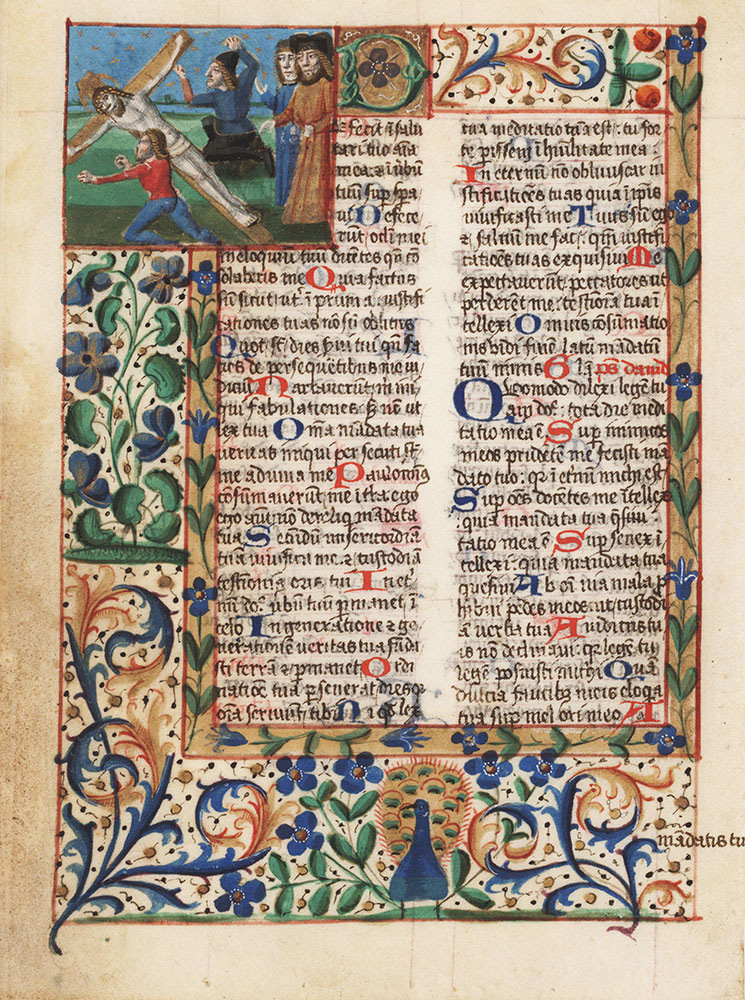 Defecit ī salu
tari tuo aīa
mea: & ī ūbū
tuū sup̄ spa
ui Defece
rūt oc̄li mei
ī eloquiū tuū dicētes qn̄ cō
solaberis me Quia factus
sū sicut ut̄ ī pruina: iustifi
cationes tuas nō sū oblitus
Quot st̄ dies serui tui qn̄ fa
cies de persequētibus me iu
diciū Narrauerūt m̄ ini
qui fabulationes: s; nō ut
lex tua Omīa mādata tua
ueritas iniqui persecuti st̄
me adiuua me Paulomin9
cōsūmauerūt me ī t̄ra ego
ego aut̄ nō dereliq̄ mādata
tua Secūdū misericordiā
tuā uiuifica me: & custodiā
testimonia oris tui In et̄
nū dō: ūbū tuū p̄manet ī
celo In generatiōe & ge
nerationē ueritas tua fūda
sti terrā & p̄manet Ordi
natiōe tua p̄seuerat dies qr̄
oīa seruiūt tibi Nisi q̄ lex
tua meditatio mea est: tūc for
te perissem ī hūilitate mea:
In eternū nō obliuiscar iu
stificatiōes tuas quia ī ipsis
uiuificasti me Tuus sū ego
& saluū me fac: qm̄ iustifi
catiōes tuas exquisiui Me
expectauerūt peccatores ut
perderēt me: testīōia tua ī
tellexi Omnis cōsūmatiō
nis uidi finē latū mādatū
tuū nimis Gl̄a ps̄ dauid
Quomodo dilexi legē tu
ā dn̄e: tota die medi
tatio mea ē Sup̄ inimicos
meos prudētē me fecisti mā
dato tuo: qr̄ ī et̄nū michi est
Sup̄ oēs docētes me ītellexi
quia mandata tua q̄siui:
tatio mea ē Sup̄ senex ī
tellexi: quia mādata tua
quesiui Ab oī uia mala p̄
hibui pedes meos: ut custodi
ā uerba tua A iudiciis tu
is nō declinaui: qr̄ legē tu
legē posuisti michi Quā
dulcia faucibus meis eloq̄a
tua sup̄ mel ori meo A
mādatis tu